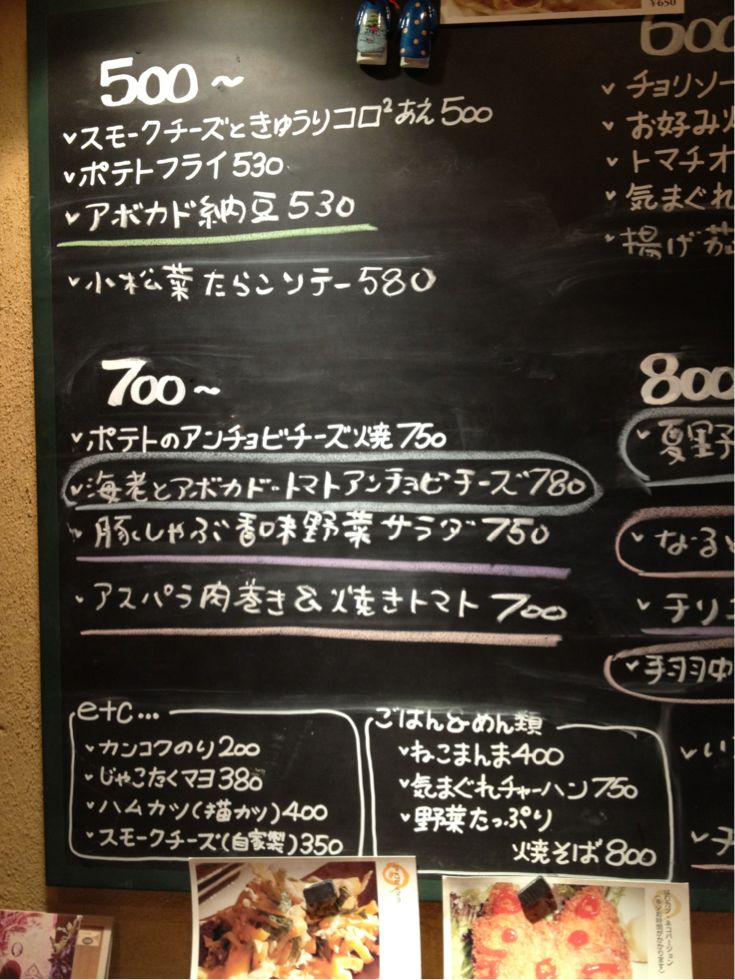 ¥650
500～
スモークチーズときゅうりコロ²あえ500
ポテトフライ530
アボカド納豆530
小松菜たらこソテー580
600
チョリソー
お好み
トマチオ
気まぐれ
揚げ茄
700～
ポテトのアンチョビチーズ焼750
海老とアボカド・トマトアンチョビチーズ780
豚しゃぶ香味野菜サラダ750
アスパラ肉巻き&焼きトマト700
800
夏野
なると
チリ
手羽中
etc...
カンコクのり200
じゃこたくマヨ380
ハムカツ(猫カツ)400
スモークチーズ(自家製)350
ごはん&めん類
ねこまんま400
気まぐれチャーハン750
野菜たっぷり
焼そば800